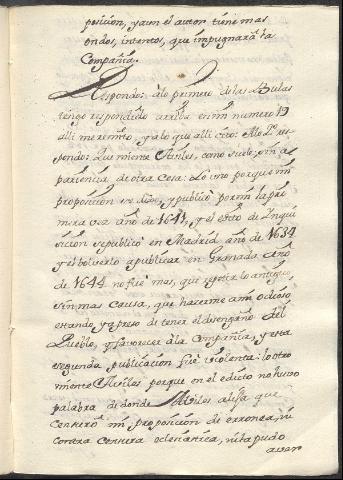 posicion, y aun el autor tiene mas
ondos, intentos, que impugnar â la
Compañia.
Respondo: âlo primero de las Bulas
tengo respondido arriba en mi numero 19
alli me remito, ya lo que alli cito: Alo 2º res-
pondo: Que miente Aviles, como suele, sin a-
pariencia de otra cosa: Lo uno porque mi
proposicion se dijo, y publicô por mi la pri-
mera vez año de 1641, y el edicto de Ynqui
sicion se publicô en Madrid año de 1634
y el bolverlo a publicar en Granada año
de 1644 no fue mas, que repetir lo antiguo
sin mas causa, que hacerme â mi odioso
estando, ya preso de tener el desengaño del
Pueblo, y favorecer â la Compañia, y esta
segunda publicacion fue violenta: lo otro
miente Aviles porque en el edicto no huvo
palabra de donde Aviles alega que
censurô mi proposicion de erronea, ni
contra censura eclesiastica, ni la pudo
aver